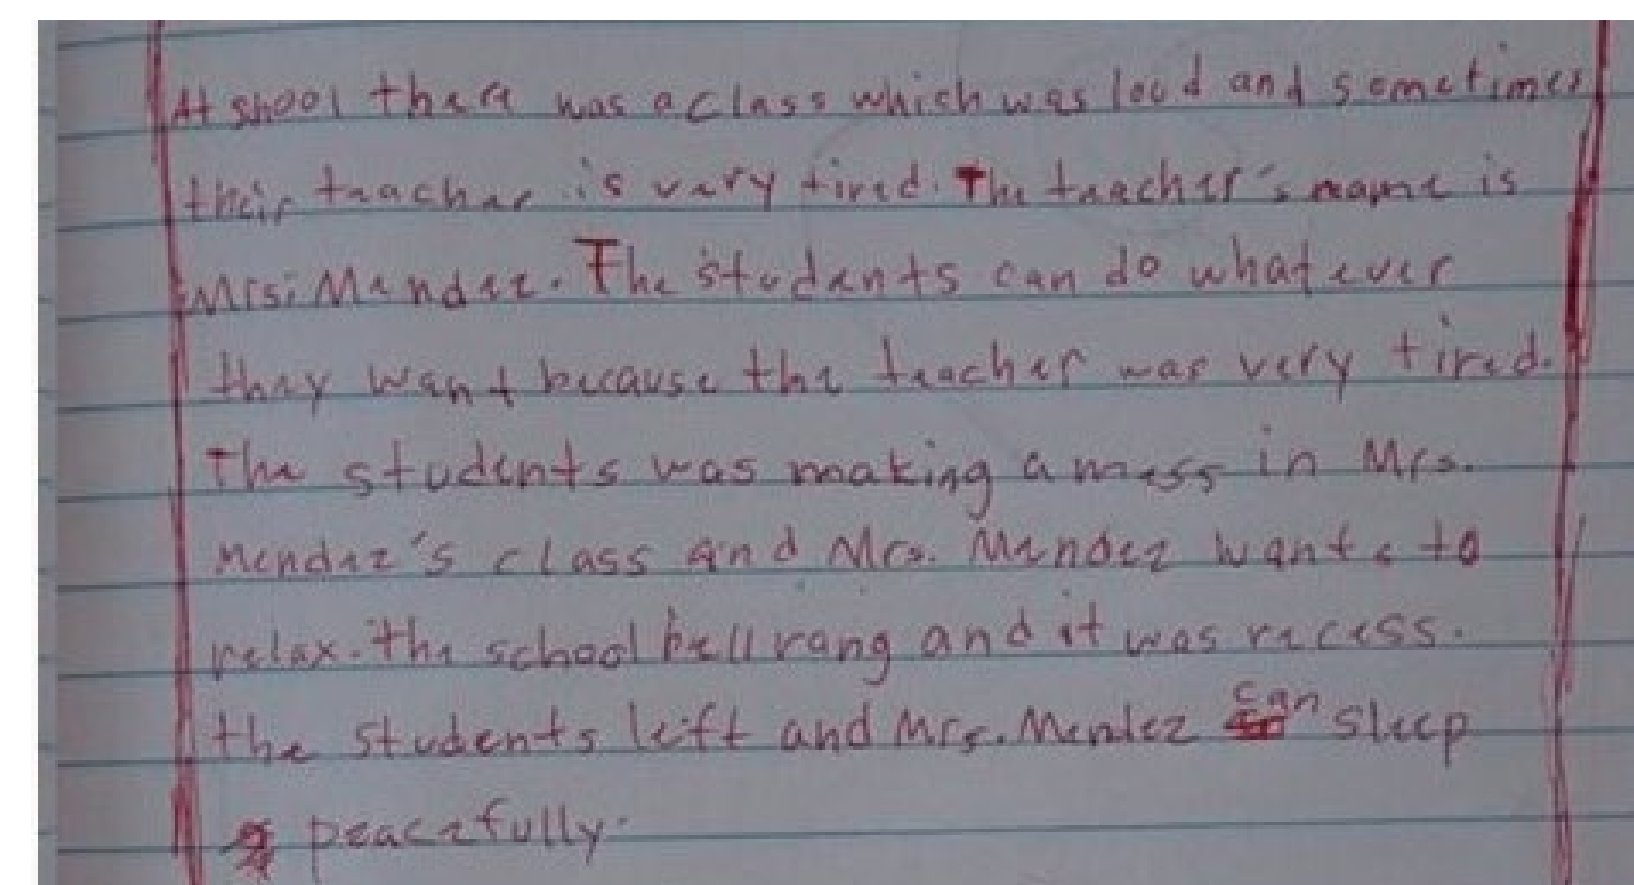 At shool there was a class which was loud and sometimes
their teacher is very tired. The teacher's name is
Mrs. Mendez. The students can do whatever
they want because the teacher was very tired.
The students was making a mess in Mrs.
Mendez's class and Mrs. Mendez wants to
relax. the school bell rang and it was recess.
the students left and Mrs. Mendez can sleep
peacefully.